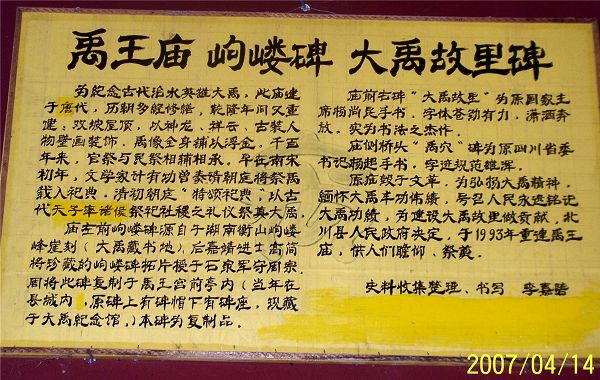 禹王庙 岣嵝碑 大禹故里碑
为纪念古代治水英雄大禹，此庙建
于唐代，历朝多经修缮，乾隆年间又重
建：双坡屋顶，以神龙、祥云、古装人
物壁画装饰，禹像全身铺以浮金，千百
年来，官祭与民祭相辅相承。早在南宋
初年，文学家计有功曾奏请朝庭将祭禹
载入祀典，清初朝庭“特颂祀典”，以古
代天子率诸侯祭祀社稷之礼仪祭奠大禹。
庙左前岣嵝碑源自于湖南衡山岣嵝
峰崖刻（大禹藏书地），后嘉靖进士高简
将珍藏的岣嵝碑拓片授于石泉军守周宗，
周将此碑复制于禹王宫前亭内（当年在
县城内，原碑上有碑帽下有碑座，现藏
于大禹纪念馆，）本碑为复制品。
庙前右碑“大禹故里”为原国家主
席杨尚昆手书，字体苍劲有力，潇洒奔
放，实为书法之杰作。
庙侧桥头“禹穴”碑为原四川省委
书记杨超手书，字迹规范雄浑。
原庙毁于文革，为弘扬大禹精神，
缅怀大禹丰功伟绩，号召人民永远铭记
大禹功绩，为建设大禹故里做贡献，北
川县人民政府决定，于1993年重建禹王
庙，供人们瞻仰、祭奠。
史料收集整理、书写 李嘉
2007/04/14